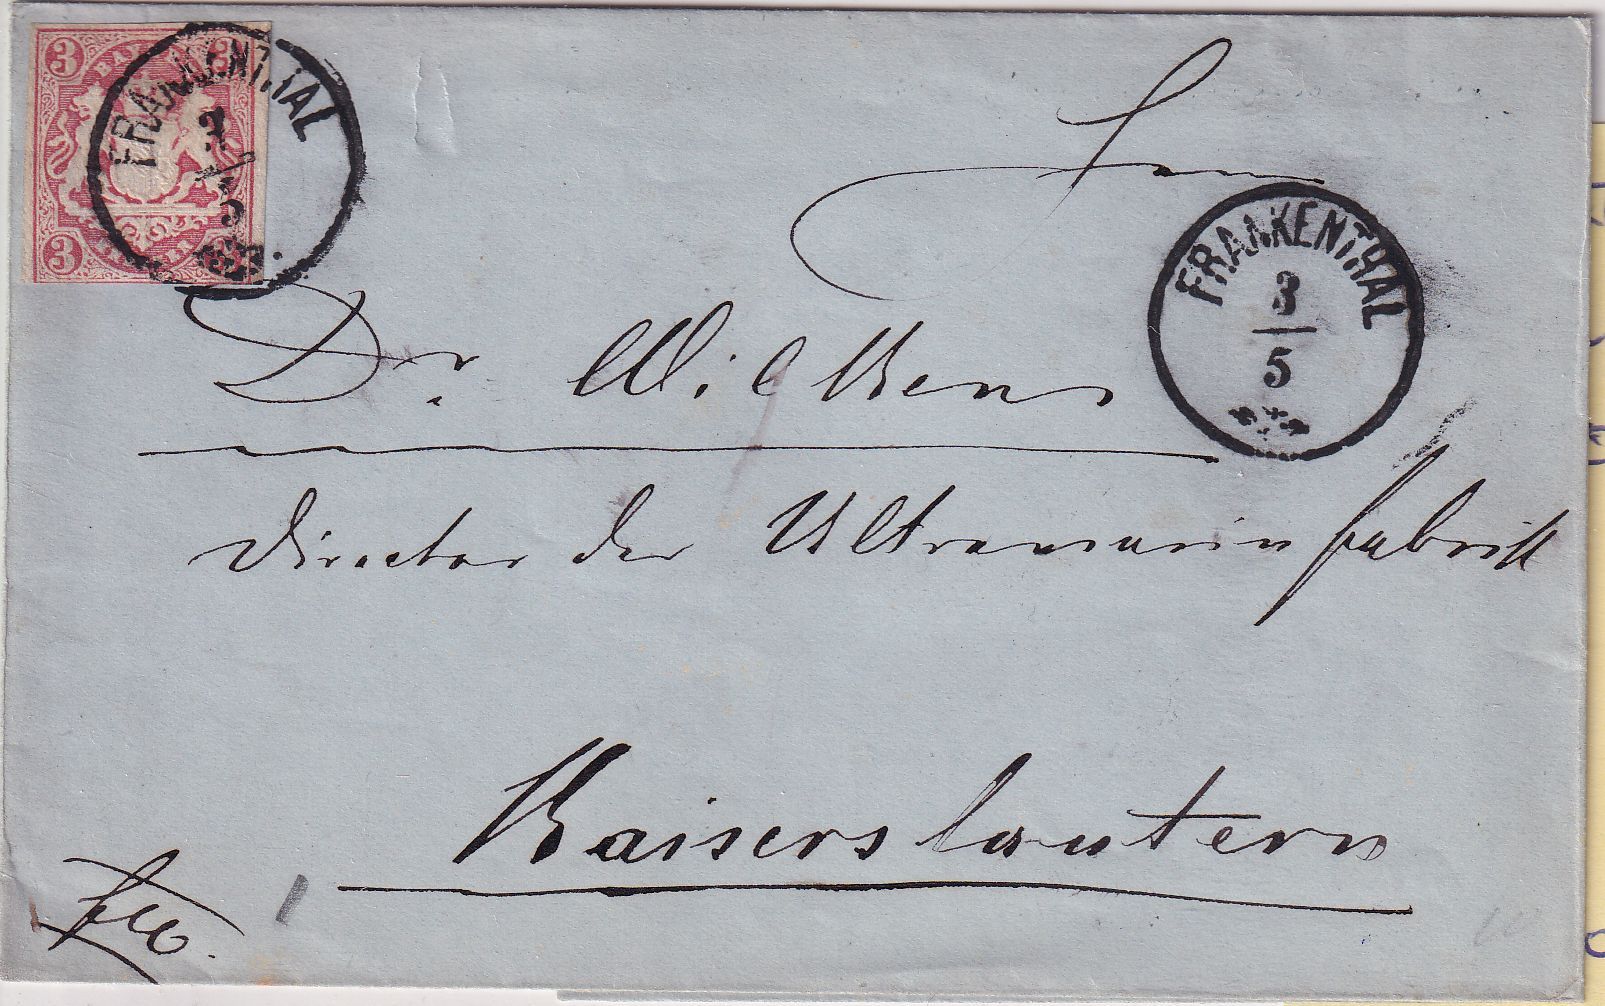 3 3
FRANKENTHAL
3
5
3
Herrn
FRANKENTHAL
3
5
Dr. Wilkens
Director der Ultramarinfabrik
Kaiserslautern
fco.